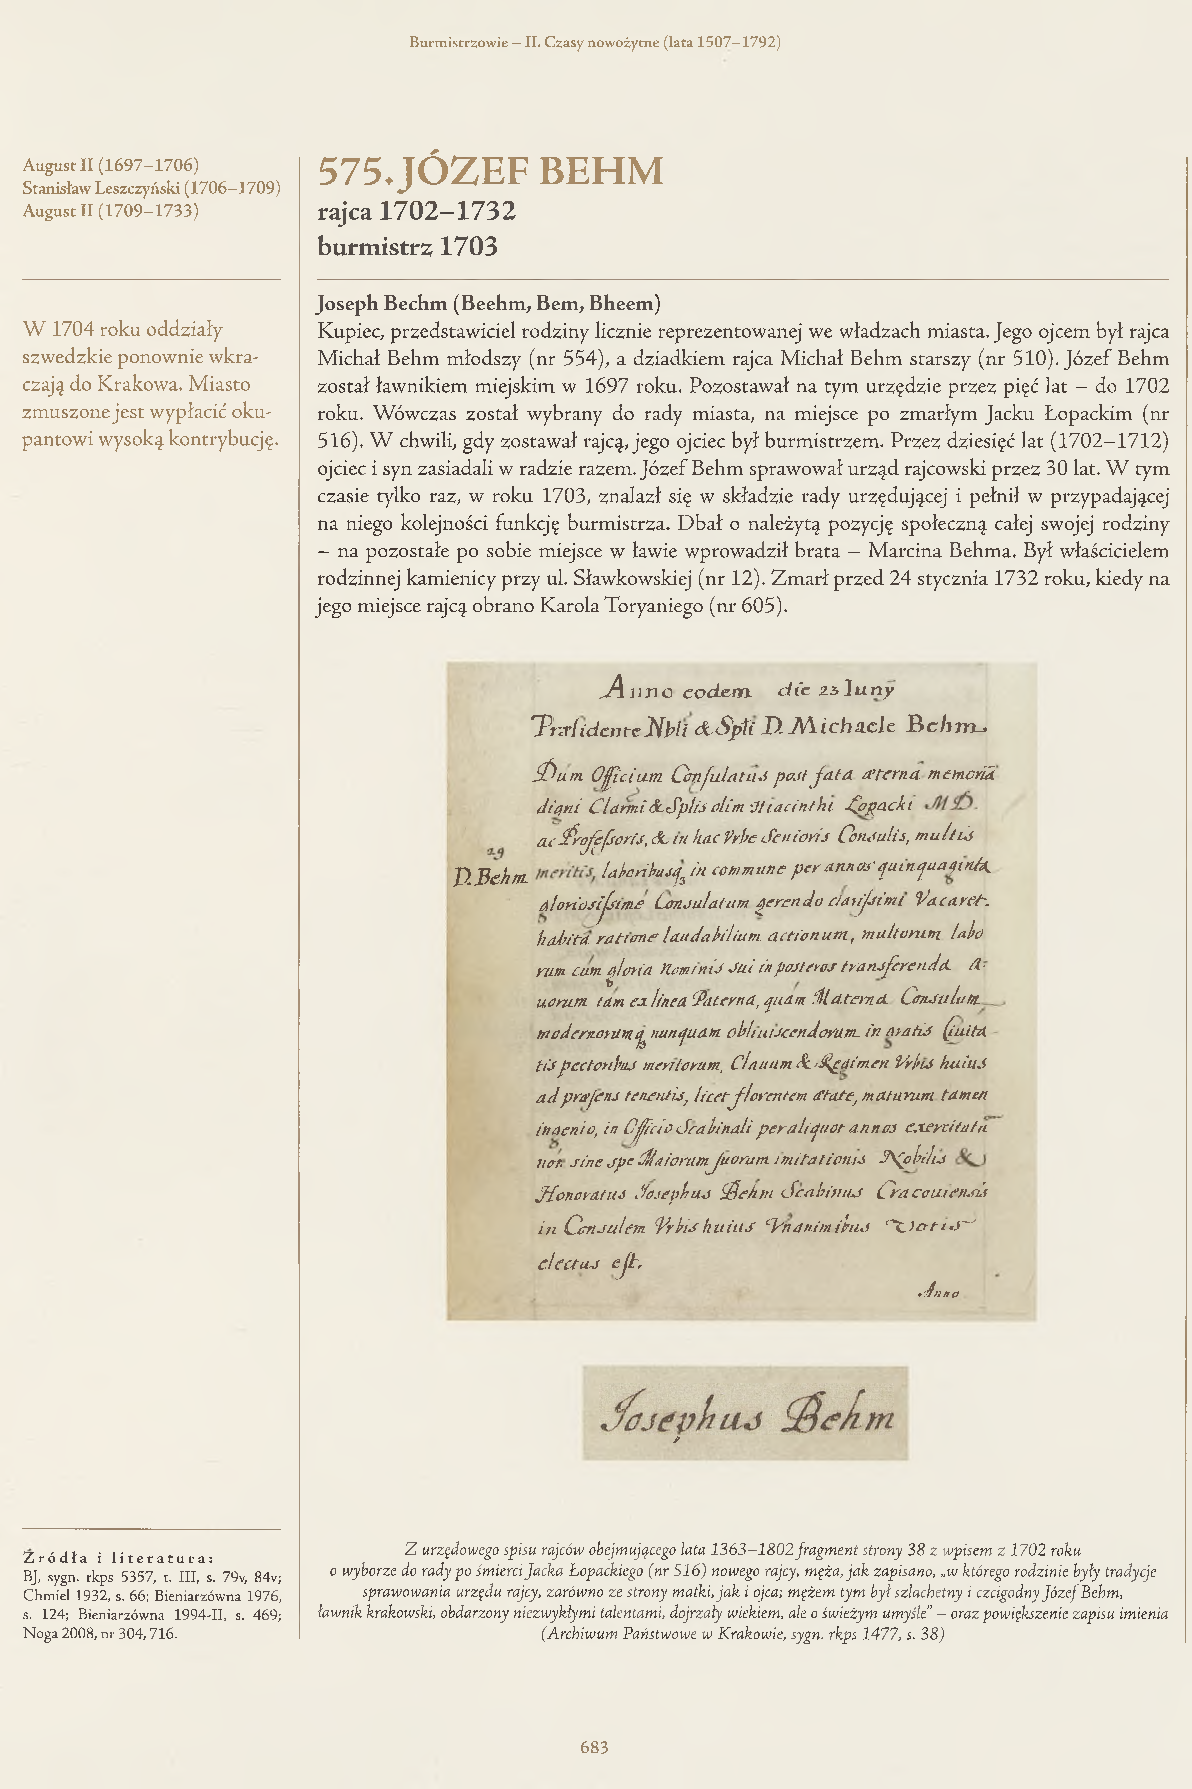 Burmistrzowie – II. Czasy nowożytne (lata 1507–1792)
August II (1697–1706)
Stanisław Leszczyński (1706–1709)
August II (1709–1733)
W 1704 roku oddziały
szwedzkie ponownie wkra-
czają do Krakowa. Miasto
zmuszone jest wypłacić oku-
pantowi wysoką kontrybucję.
575. JÓZEF BEHM
rajca 1702–1732
burmistrz 1703
Joseph Bechm (Beehm, Bem, Bheem)
Kupiec, przedstawiciel rodziny licznie reprezentowanej we władzach miasta. Jego ojcem był rajca
Michał Behm młodszy (nr 554), a dziadkiem rajca Michał Behm starszy (nr 510). Józef Behm
został ławnikiem miejskim w 1697 roku. Pozostawał na tym urzędzie przez pięć lat – do 1702
roku. Wówczas został wybrany do rady miasta, na miejsce po zmarłym Jacku Łopackim (nr
516). W chwili, gdy zostawał rajcą, jego ojciec był burmistrzem. Przez dziesięć lat (1702–1712)
ojciec i syn zasiadali w radzie razem. Józef Behm sprawował urząd rajcowski przez 30 lat. W tym
czasie tylko raz, w roku 1703, znalazł się w składzie rady urzędującej i pełnił w przypadającej
na niego kolejności funkcję burmistrza. Dbał o należytą pozycję społeczną całej swojej rodziny
– na pozostałe po sobie miejsce w ławie wprowadził brata – Marcina Behma. Był właścicielem
rodzinnej kamienicy przy ul. Sławkowskiej (nr 12). Zmarł przed 24 stycznia 1732 roku, kiedy na
jego miejsce rajcą obrano Karola Toryaniego (nr 605).
Anno eodem die 23 Iuny
Præsidente Nbli & Spli D. Michaele Behm
Dum Officium Consulatus post fata æterna memoria
digni Clarmi & Splis olim Hiacinthi Łopacki M D.
ac Professoris, & in hac Vrbe Senioris Consulis, multis
29
D. Behm
meritis, laboribusq, in commune per annos quinquaginta
gloriosissime Consulatum gerendo clarissimi Vacaret.
habitâ ratione laudabilium actionum, multorum labo
rum cum gloria Nominis sui in posteros transferenda A-
uorum tam ex linea Paterna, quam Materna Consulum
modernorumq nunquam obliuiscendorum in gratis Ciuita-
tis pectoribus meritorum, Clauum & Regimen Vrbis huius
ad præsens tenentis, licet florentem ætate, maturum tamen
ingenio, in Officio Scabinali per aliquot annos exercitatũ
non sine spe Maiorum suorum imitationis Nobilis &
Honoratus Josephus Behm Scabinus Cracouiensis
in Consulem Vrbis huius Vnanimibus Votis
electus est.
Anno
Josephus Behm
Źródła i literatura:
BJ, sygn. rkps 5357, t. III, s. 79v, 84v;
Chmiel 1932, s. 66; Bieniarzówna 1976,
s. 124; Bieniarzówna 1994-II, s. 469;
Noga 2008, nr 304, 716.
Z urzędowego spisu rajców obejmującego lata 1363–1802 fragment strony 38 z wpisem z 1702 roku
o wyborze do rady po śmierci Jacka Łopackiego (nr 516) nowego rajcy, męża, jak zapisano, „w którego rodzinie były tradycje
sprawowania urzędu rajcy, zarówno ze strony matki, jak i ojca; mężem tym był szlachetny i czcigodny Józef Behm,
ławnik krakowski, obdarzony niezwykłymi talentami, dojrzały wiekiem, ale o świeżym umyśle” – oraz powiększenie zapisu imienia
(Archiwum Państwowe w Krakowie, sygn. rkps 1477, s. 38)
683